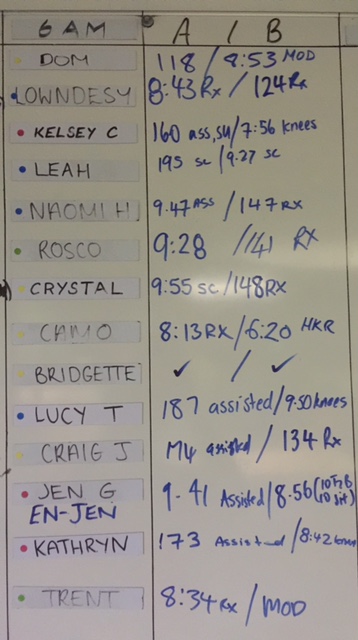 6 AM A / B
DOM 118 / 8:53 MOD
LOWNDESY 8:43 Rx / 124 Rx
KELSEY C 160 ass,su/7:56 knees
LEAH 195 sc /9:27 sc
NAOMI H 9.47 ASS / 147 RX
ROSCO 9:28 /141 RX
CRYSTAL 9:55 sc/148RX
CAMO 8:13 RX/6:20 HKR
BRIDGETTE ✓ / ✓
LUCY T 187 assisted/9.50 knees
CRAIG J 174 assisted / 134 Rx
JEN G 9.41 Assisted/8.56
EN-JEN
KATHRYN 173 Assisted /8:42 knees
TRENT 8:34 Rx / MOD